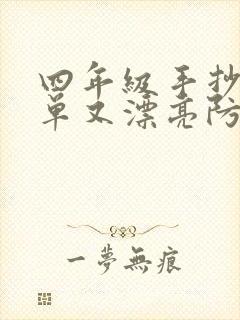 四年级手抄
单又漂亮防
一夢無痕